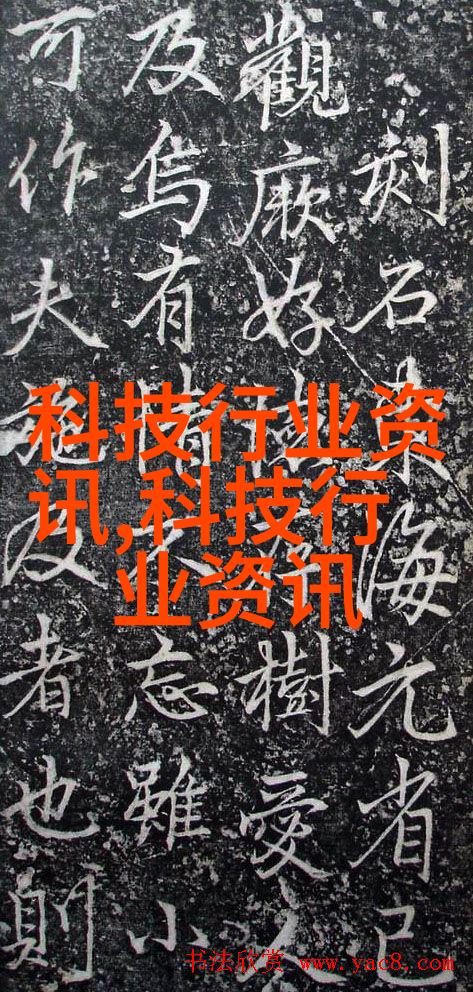 刻石東海元省已
觀厥好樹愛
及烏有情不忘雖小
可作夫施及者也則
科技行业资
讯,科技行
业资讯
书法欣赏 www.yac8.com